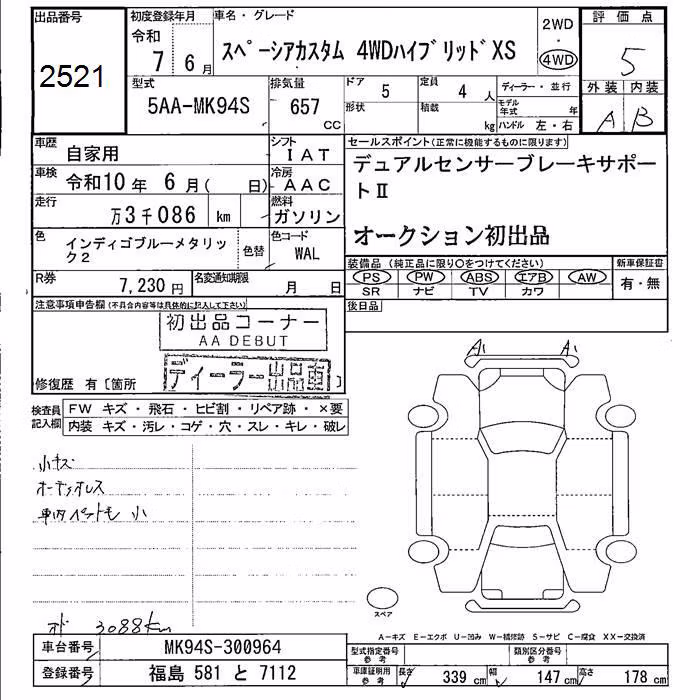 出品番号
2521
初度登録年月
令和
7 6 月
車名・グレード
スペーシアカスタム 4WDハイブリッドXS
2WD
・
4WD
評価点
5
外装 内装
A B
型式
5AA-MK94S
排気量
657
CC
ドア
5
形状
定員
4 人
積載
kg
ディーラー・並行
モデル年式 年
ハンドル 左・右
車歴
自家用
シフト
IAT
車検
令和10年 6月( 日)
冷房
AAC
走行
万3千086 km
燃料
ガソリン
色
インディゴブルーメタリック2
色替
色コード
WAL
R券
7,230円
名変通知期限
月 日
セールスポイント(正常に機能するものに限ります)
デュアルセンサーブレーキサポー
トⅡ
オークション初出品
装備品(純正品に限り〇をつけてください)
PS PW ABS エアB AW
SR ナビ TV カワ
新車保証書
有・無
後日品
注意事項申告欄(不具合内容等は具体的に記入して下さい)
初出品コーナー
AA DEBUT
ディーラー出品車
修復歴 有〔箇所 〕
検査員
記入欄
FW キズ・飛石・ヒビ割・リペア跡・×要
内装 キズ・汚レ・コゲ・穴・スレ・キレ・破レ
小キズ
オーディオレス
車内ペットも 小
オド 3088km
A1 A1
スペア
A-キズ E-エクボ U-凹み W-補修跡 S-サビ C-腐食 XX-交換済
車台番号
MK94S-300964
登録番号
福島 581 と 7112
型式指定番号
参考
類別区分番号
参考
車庫証明用
参考
長さ 339 cm
幅 147 cm
高さ 178 cm